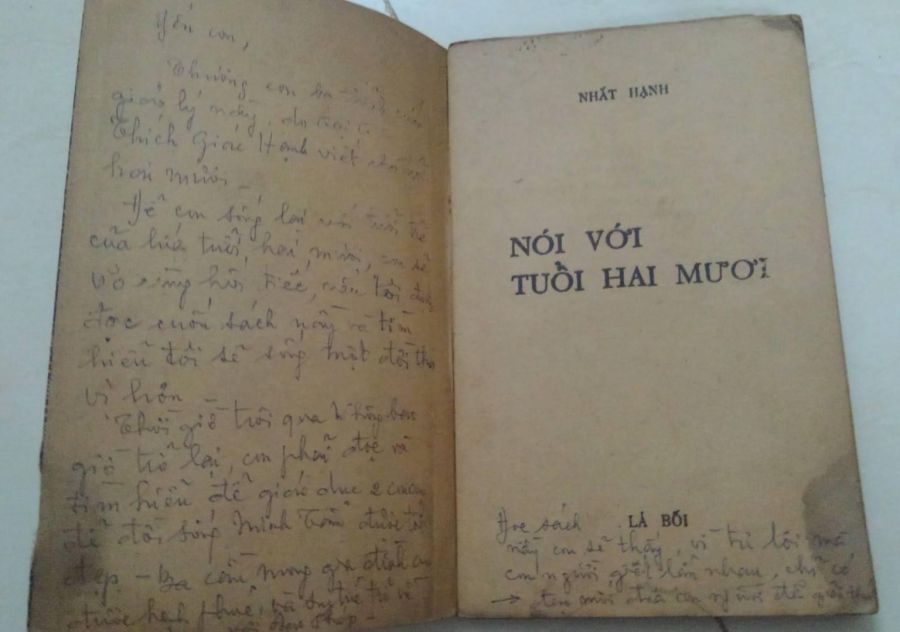 Yến con,
Thương con ba
giáo lý nầy, do
Thích Giác Hạnh viết
hai mươi.
Để con sống lại với tuổi trẻ
của lứa tuổi hai mươi, con sẽ
vô cùng hối tiếc, nếu tôi
đọc cuốn sách nầy và tìm
hiểu tôi sẽ sống một đời thú
vị hơn.
Thời giờ trôi qua không bao
giờ trở lại, con phải đọc và
tìm hiểu để giáo dục 2
để đời sống Minh Tâm được tốt
đẹp - Ba cầu mong gia đình
được hạnh phúc,
NHẤT HẠNH
NÓI VỚI
TUỔI HAI MƯƠI
LÁ BỐI
Đọc sách
nầy con sẽ thấy, vì tư lợi mà
con người giết lẫn nhau, chỉ có